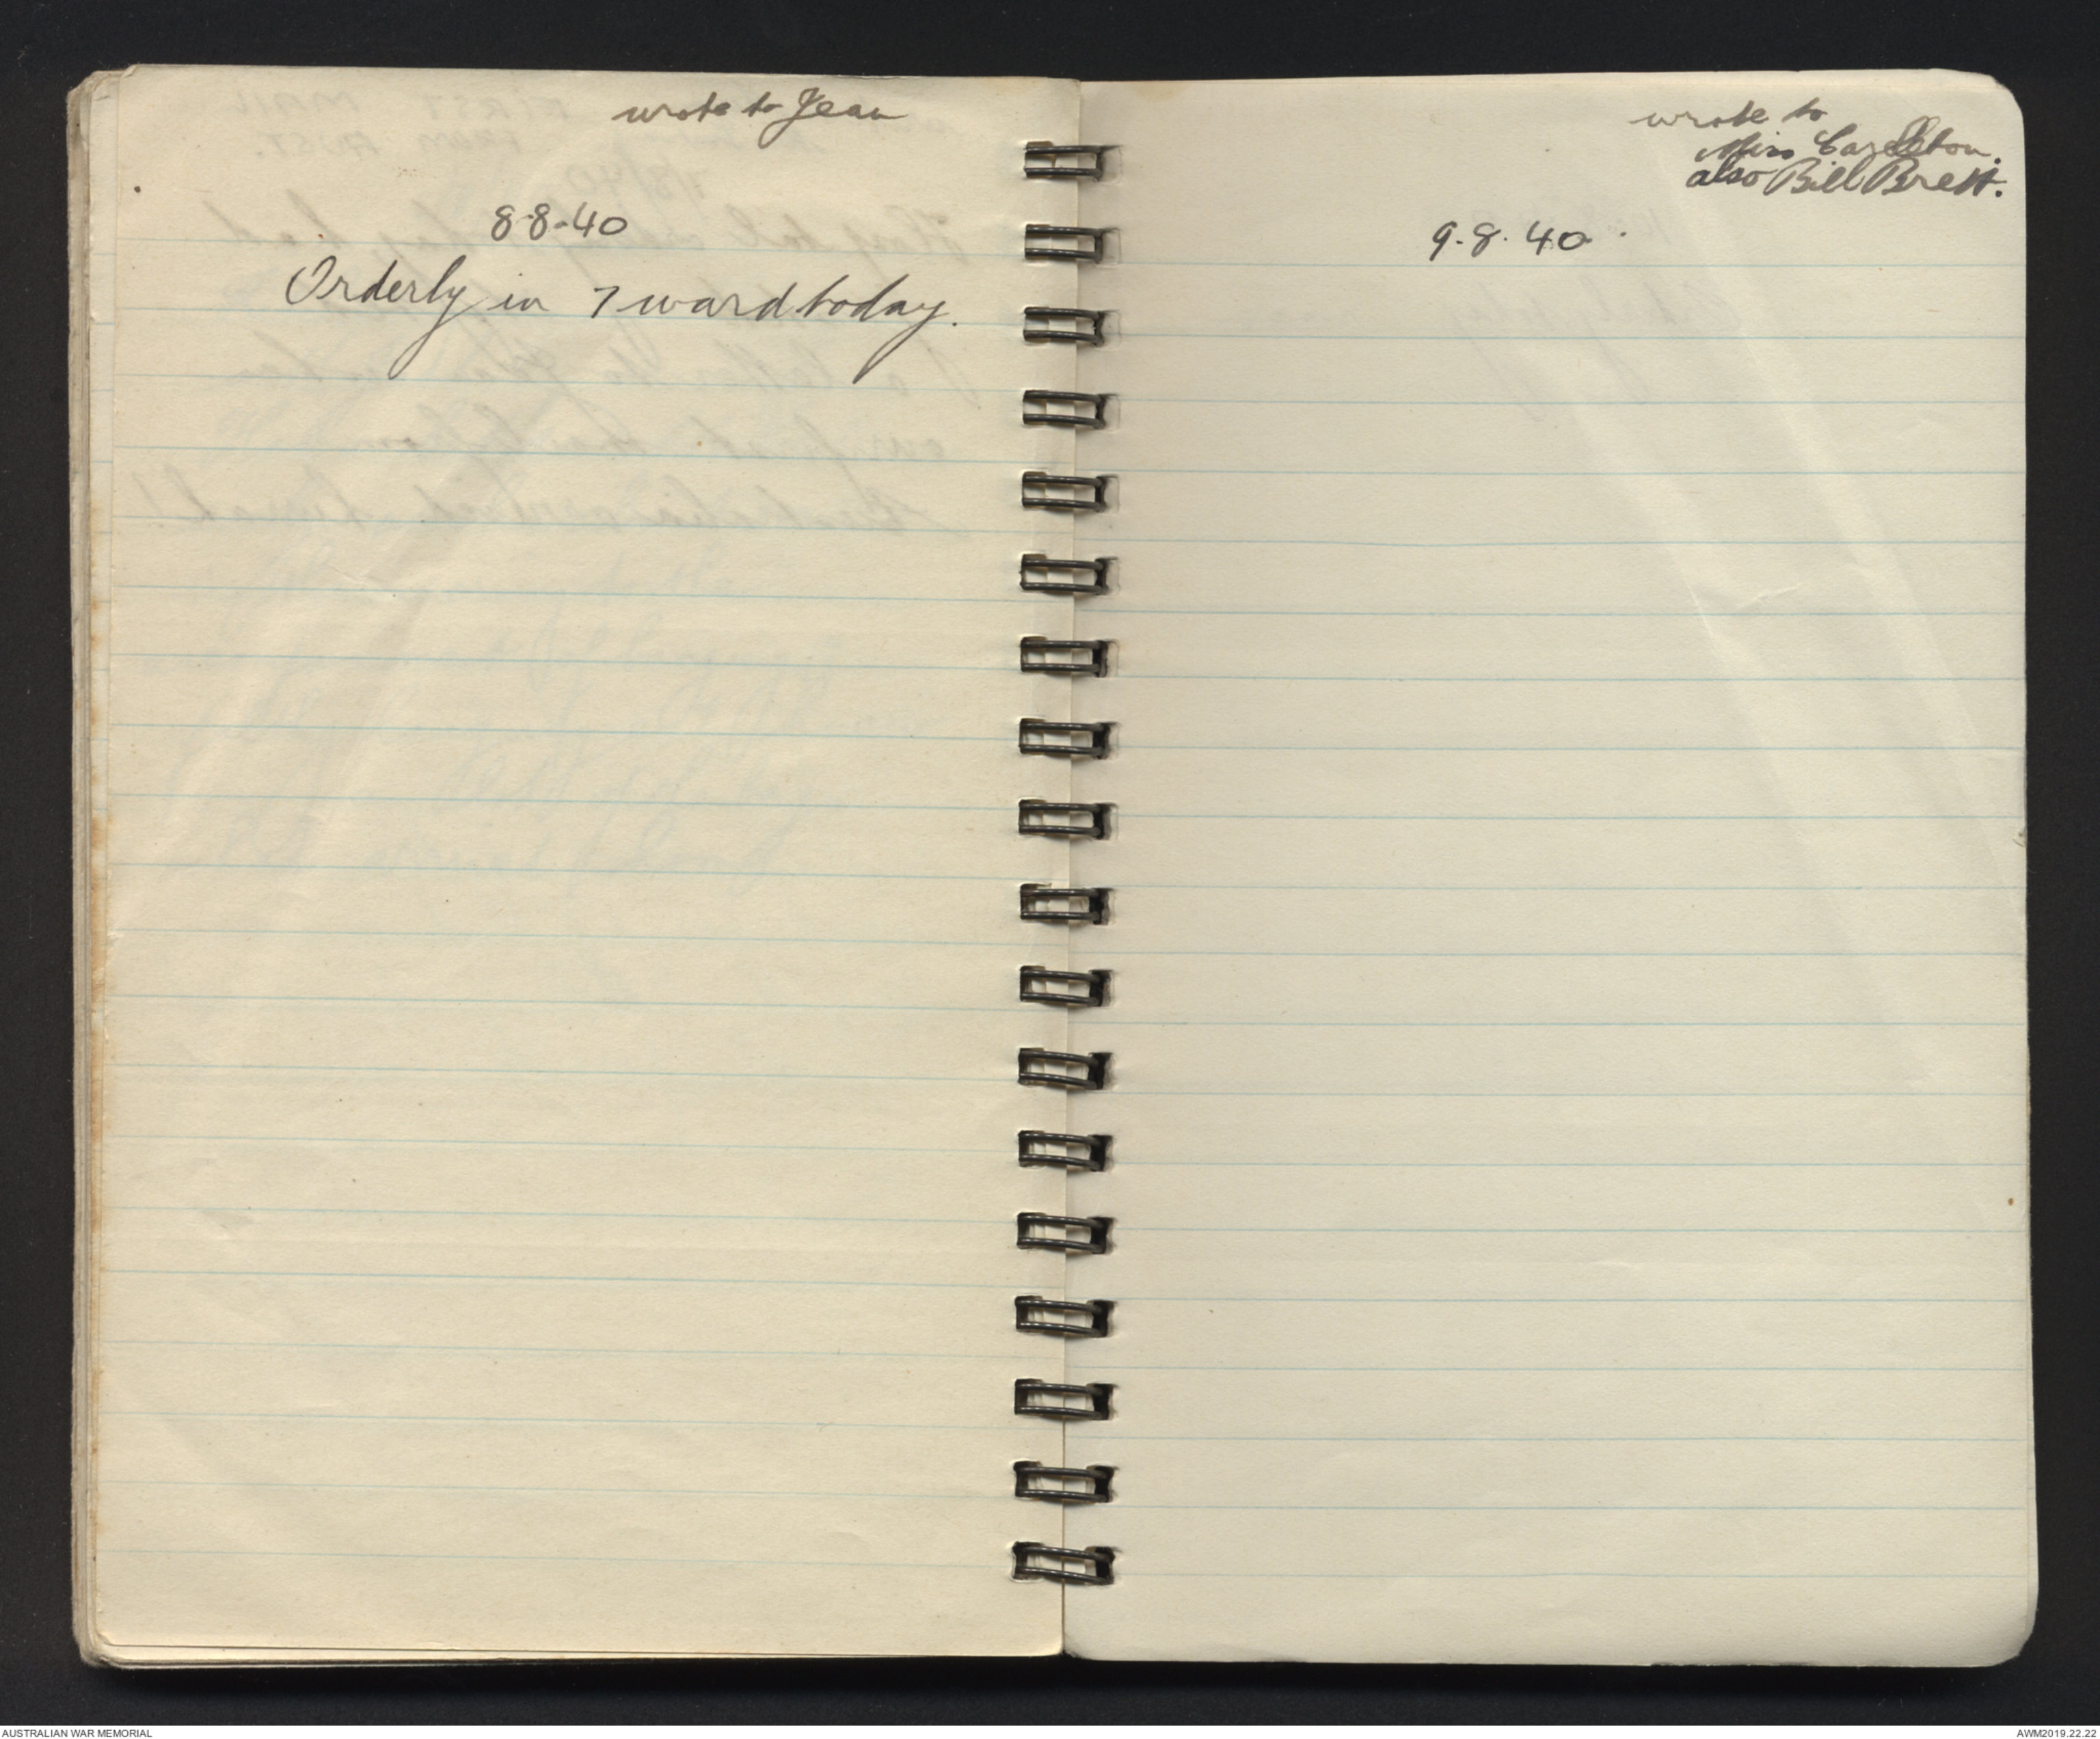 wrote to Jean
8-8-40
Orderly in 7 ward today.
wrote to
Miss
also Bill Brett.
9.8.40.
AUSTRALIAN WAR MEMORIAL
AWM2019.22.22